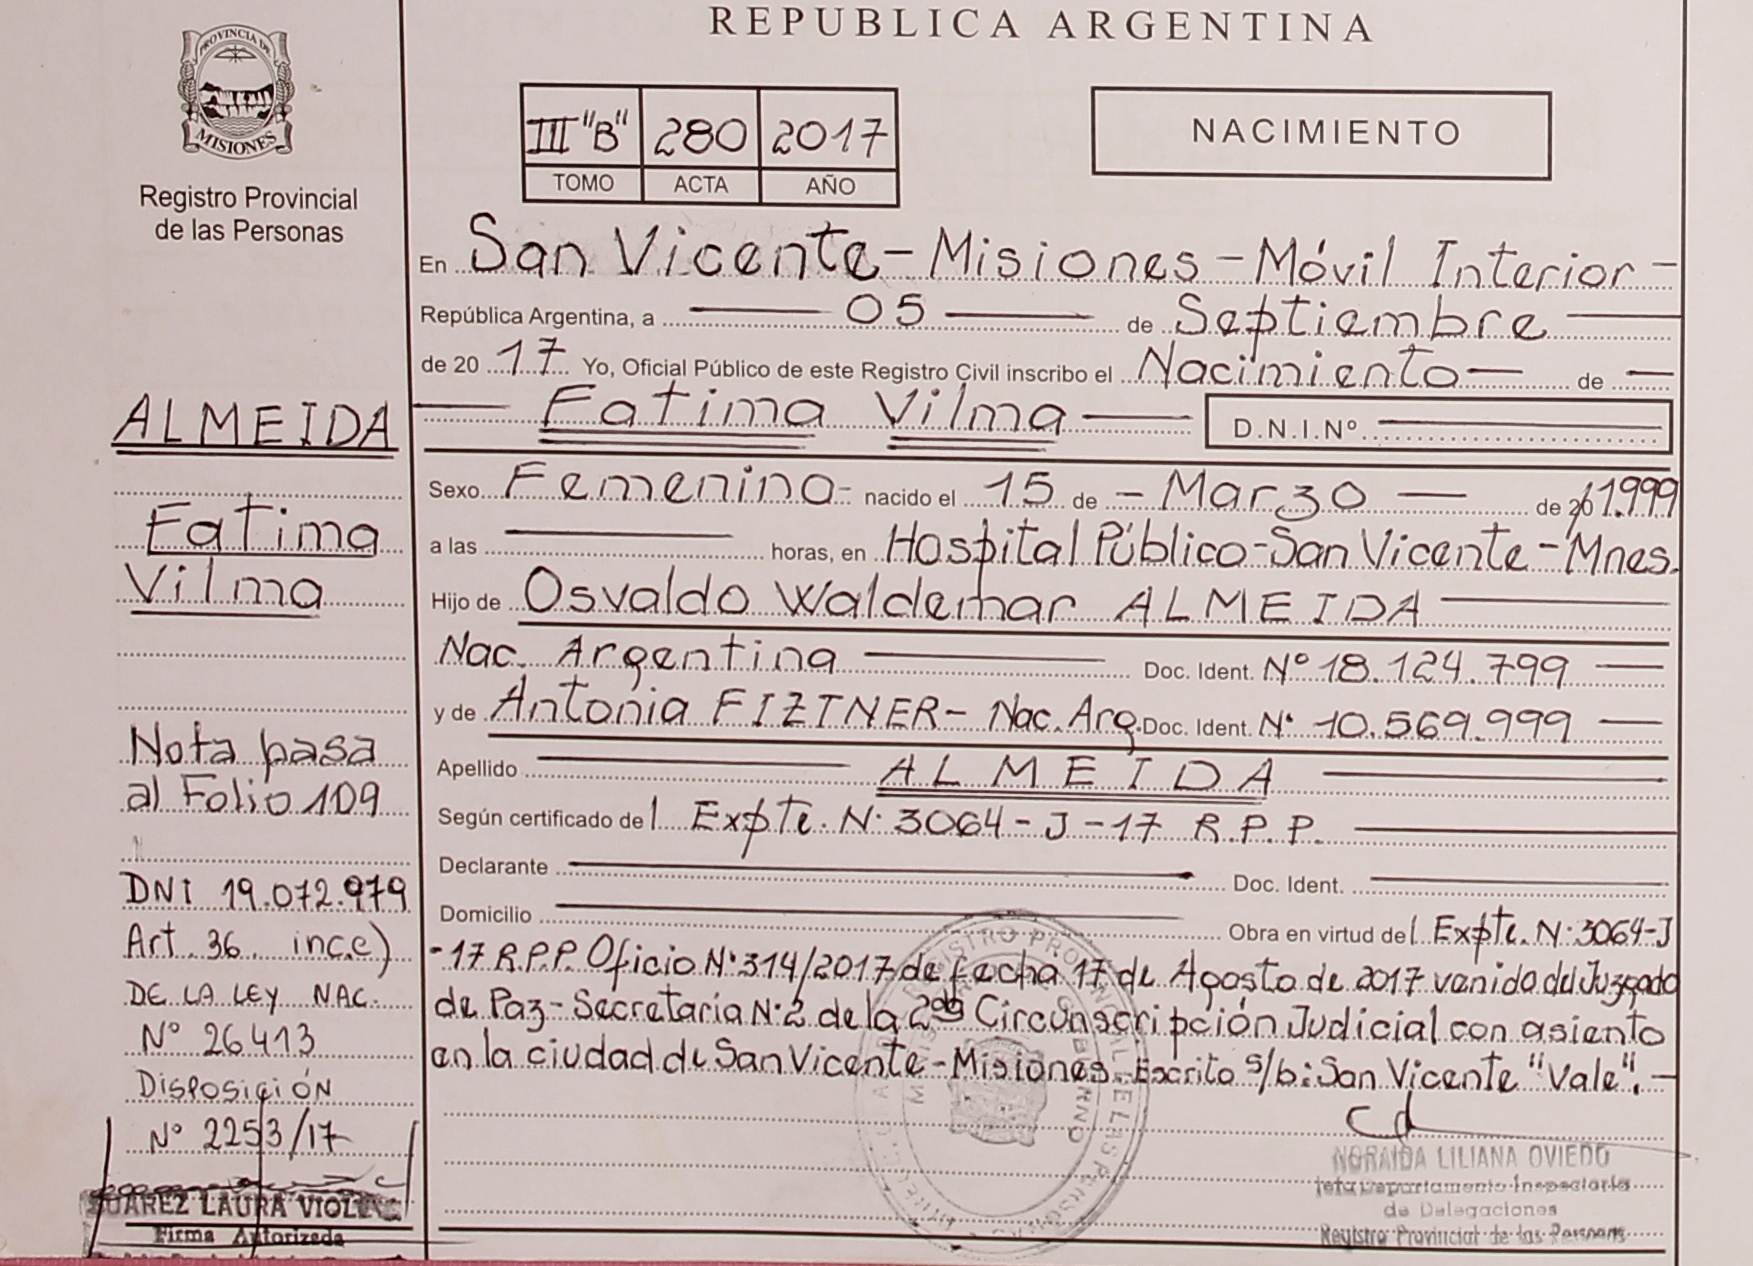 REPUBLICA ARGENTINA
PROVINCIA DE
MISIONES
Registro Provincial
de las Personas
III "B" 280 2017
TOMO ACTA AÑO
NACIMIENTO
En San Vicente - Misiones - Móvil Interior -
República Argentina, a 05 de Septiembre
de 20 17 Yo, Oficial Público de este Registro Civil inscribo el Nacimiento de
Fatima Vilma D.N.I.Nº
Sexo Femenino - nacido el 15 de - Marzo de 20 1.999
a las horas, en Hospital Público - San Vicente - Mnes.
Hijo de Osvaldo Waldemar ALMEIDA
Nac. Argentina Doc. Ident. Nº 18.124.799
y de Antonia FIZTNER - Nac. Arg. Doc. Ident. Nº 10.569.999
Apellido ALMEIDA
Según certificado de l Expte. N: 3064 - J - 17 R.P.P.
Declarante Doc. Ident.
Domicilio Obra en virtud de l Expte. N: 3064-J
-17 R.P.P. Oficio Nº 314/2017 de fecha 17 de Agosto de 2017 venido del Juzgado
de Paz - Secretaria Nº 2 de la 2da Circunscripción Judicial con asiento
en la ciudad de San Vicente - Misiones. Escrito s/b: San Vicente "Vale". -
NORAIDA LILIANA OVIEDO
Jefa Departamento Inspectoria
de Delegaciones
Registro Provincial de las Personas
ALMEIDA
Fatima
Vilma
Nota pasa
al Folio 109
DNI 19.072.979
Art. 36 inc. c)
DE LA LEY NAC.
Nº 26413
DISPOSICIÓN
Nº 2253/17
SUAREZ LAURA
Firma Autorizada